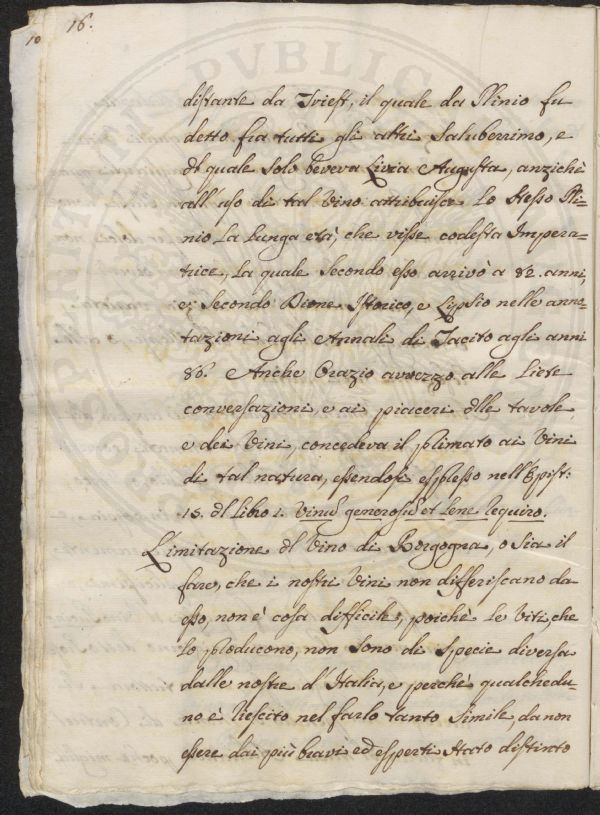 10 16.
distante da Triest, il quale da Plinio fu
detto fra tutti gli altri Saluberrimo, e
dl quale solo beveva Livia Augusta, anzichè
all'uso di tal vino attribuisce lo stesso Pli-
nio la lunga età, che visse codesta Impera-
trice, la quale secondo esso arrivò a 82. anni,
e; secondo Dione Istorico, e Lipsio nelle anno-
tazioni agli Annali di Tacito agli anni
86. Anche Orazio avvezzo alle liete
conversazioni, e ai piaceri dlle tavole
e dei vini, concedeva il primato ai vini
di tal natura, essendosi espresso nell'Epist:
15. dl libro 1. Vinũ generosũ et lene requiro.
L'imitazione dl vino di Borgogna, o sia il
fare, che i nostri vini non differiscano da
esso, non è cosa difficile, poichè le viti, che
lo producono, non sono di specie diversa
dalle nostre d'Italia, e perchè qualchedu-
no è riescito nel farlo tanto simile, da non
essere dai più bravi ed esperti stato distinto